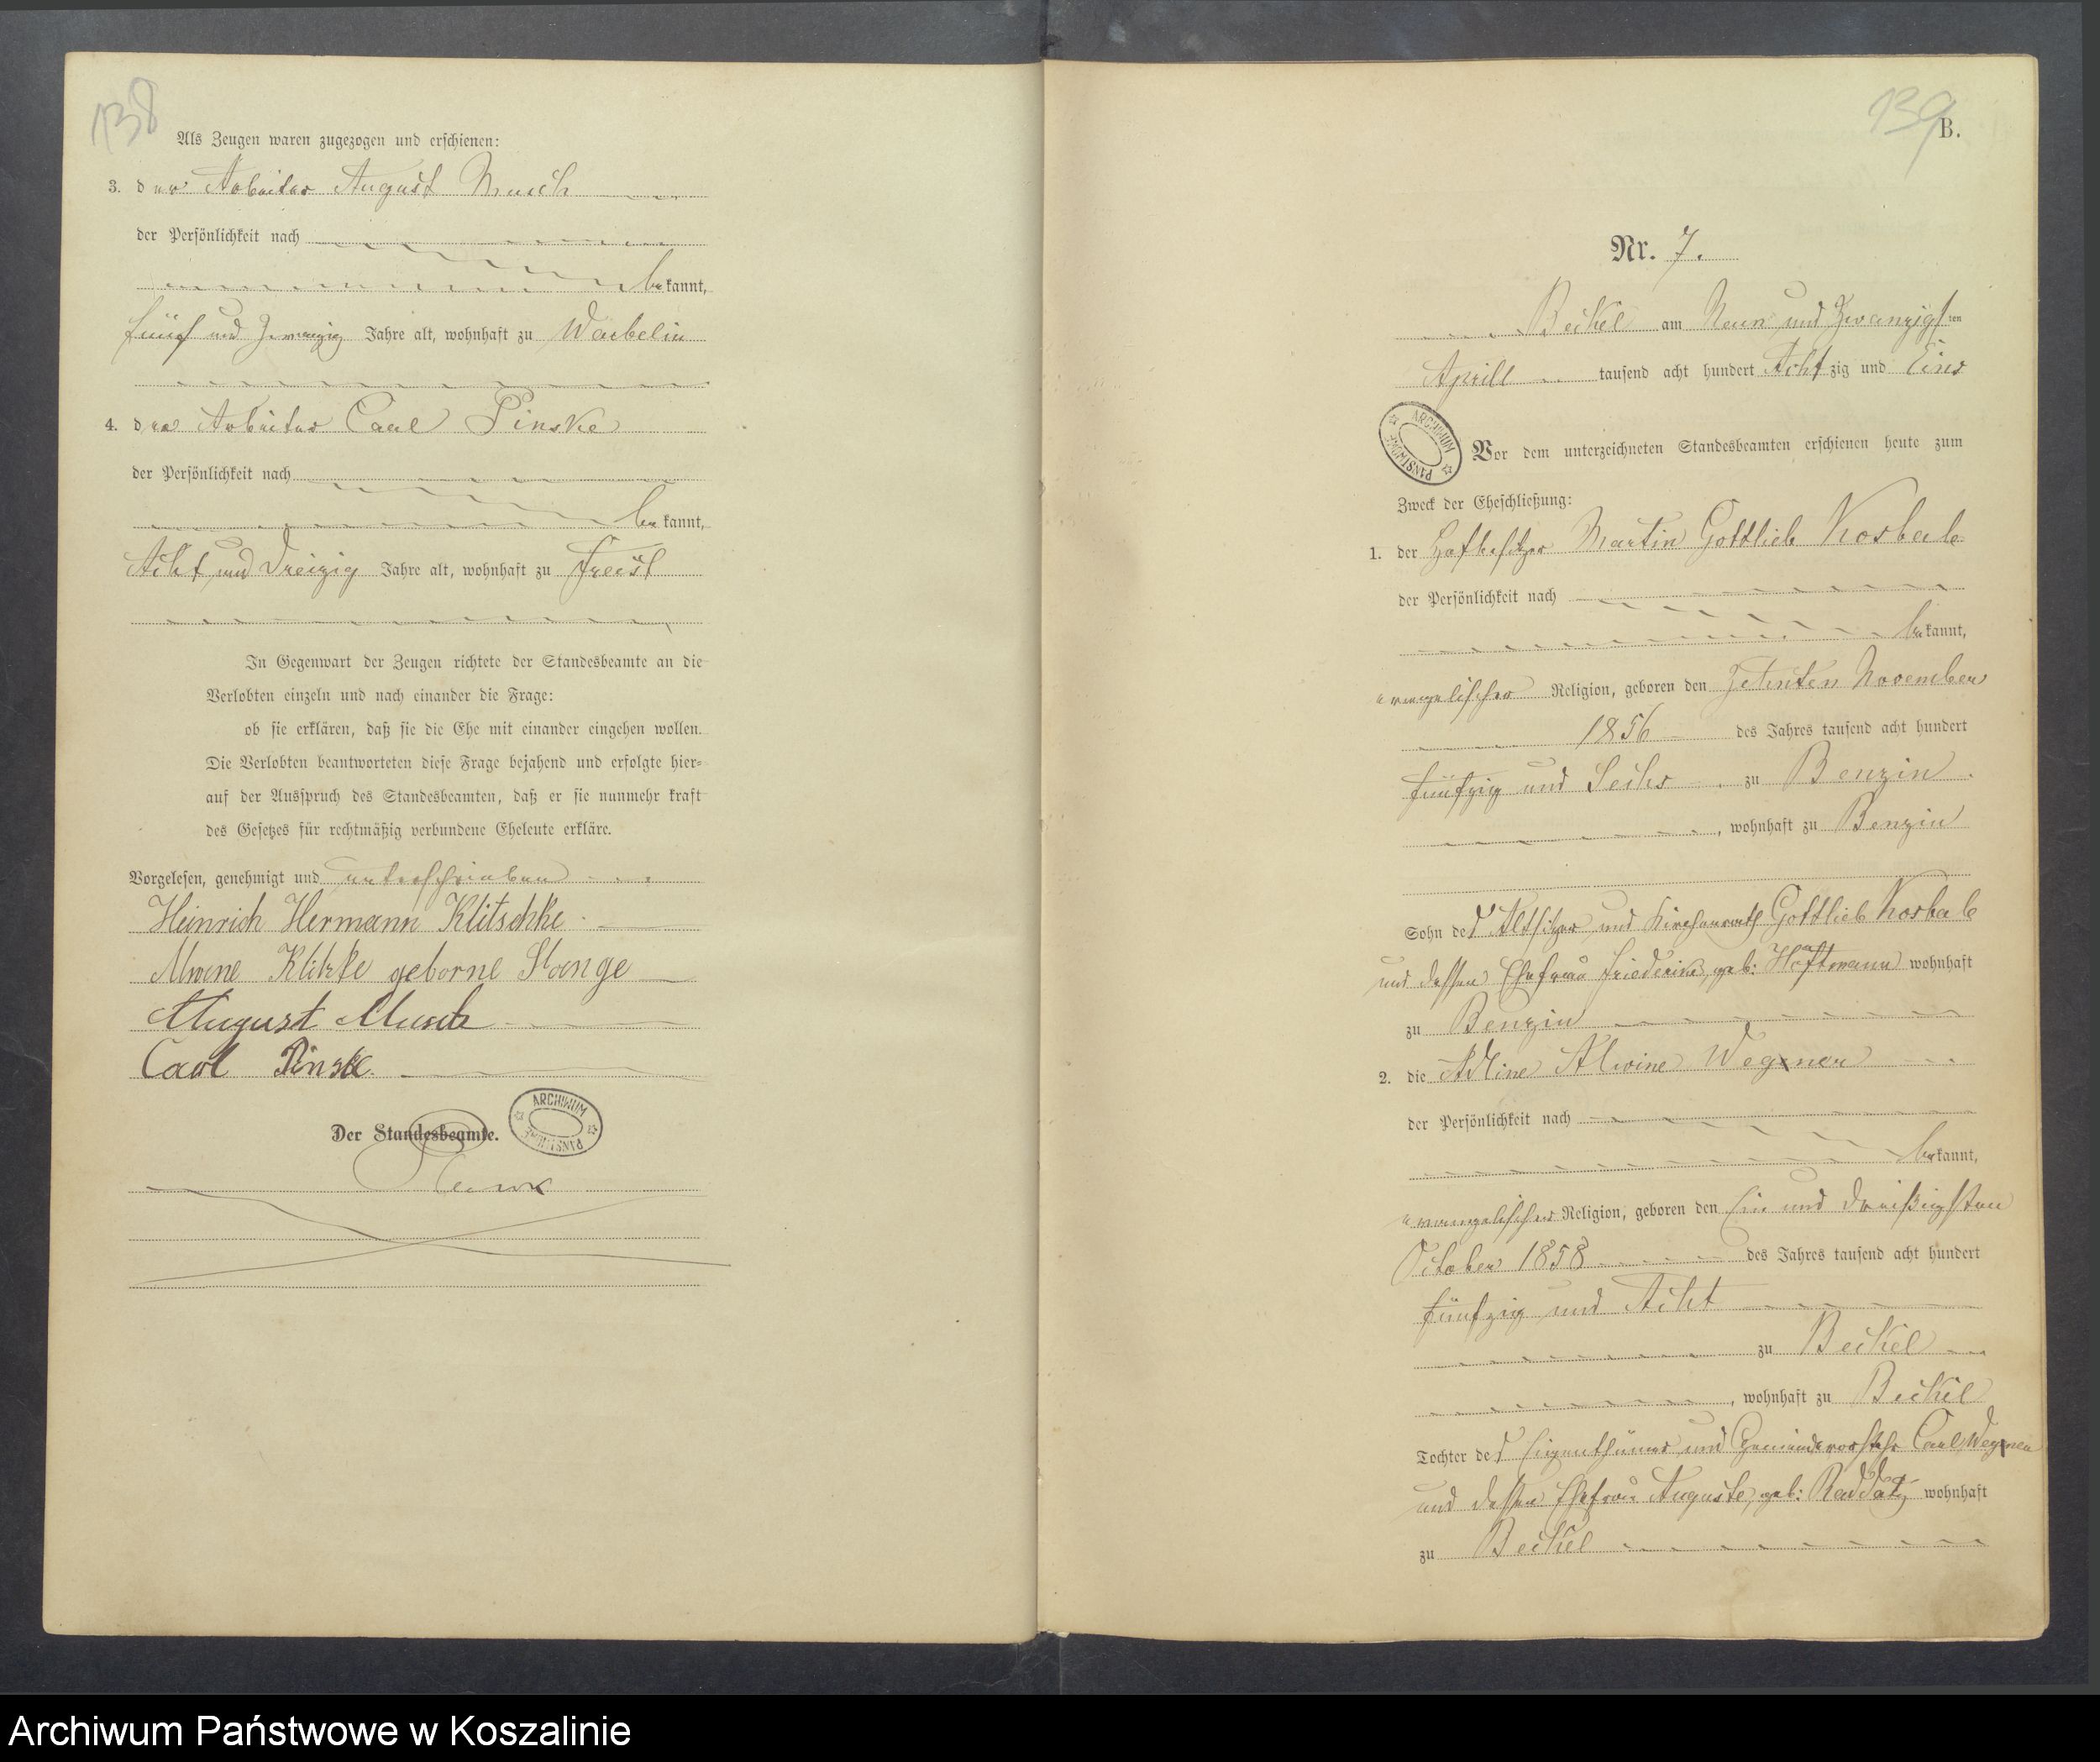 138
Als Zeugen waren zugezogen und erschienen:
3. der Arbeiter August Musch
der Persönlichkeit nach
bekannt,
fünf und Zwanzig Jahre alt, wohnhaft zu Warbelin
4. der Arbeiter Carl Pinske
der Persönlichkeit nach
bekannt,
Acht und Dreizig Jahre alt, wohnhaft zu Freist
In Gegenwart der Zeugen richtete der Standesbeamte an die
Verlobten einzeln und nach einander die Frage:
ob sie erklären, daß sie die Ehe mit einander eingehen wollen.
Die Verlobten beantworteten diese Frage bejahend und erfolgte hier-
auf der Ausspruch des Standesbeamten, daß er sie nunmehr kraft
des Gesetzes für rechtmäßig verbundene Eheleute erkläre.
Vorgelesen, genehmigt und unterschrieben
Heinrich Hermann Klitschke
Alwine Klitzke geborne Stange
August Musch
Carl Pinske
Der Standesbeamte.
ARCHIWUM PAŃSTWOWE
139
B.
Nr. 7.
Beckel am Neun und Zwanzigsten
Aprill tausend acht hundert Achtzig und Eins
ARCHIWUM PAŃSTWOWE
Vor dem unterzeichneten Standesbeamten erschienen heute zum
Zweck der Eheschließung:
1. der Hofbesitzer Martin Gottlieb Kosbab
der Persönlichkeit nach
bekannt,
evangelischer Religion, geboren den Zehnten November
1856 des Jahres tausend acht hundert
fünfzig und Sechs zu Benzin
, wohnhaft zu Benzin
Sohn des Altsitzer und Kirchenrath Gottlieb Kosbab
und dessen Ehefrau Friederike, geb: Haftmann wohnhaft
zu Benzin
2. die Adline Alwine Wegner
der Persönlichkeit nach
bekannt,
evangelischer Religion, geboren den Ein und dreißigsten
October 1858 des Jahres tausend acht hundert
fünfzig und Acht
zu Beckel
, wohnhaft zu Beckel
Tochter des Eigenthümer und Gemeindevorsteher Carl Wegner
und dessen Ehefrau Auguste, geb: Raddatz wohnhaft
zu Beckel
Archiwum Państwowe w Koszalinie